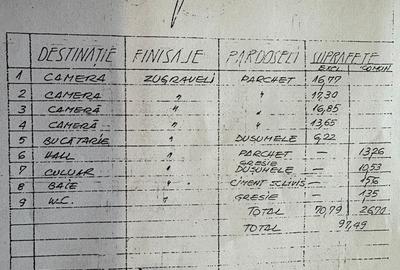 DESTINAȚIE FINISAJE PARDOSELI SUPRAFEȚE
EXCL. COMUN.
1 CAMERA ZUGRAVELI PARCHET 16,77
2 CAMERA " " 17,30
3 CAMERĂ " " 16,85
4 CAMERĂ " " 13,65
5 BUCĂTARIE " DUSUMELE 6,22
6 HALL " PARCHET — 13,26
GRESIE
7 CULUAR " DUSUMELE — 10,53
8 BAIE " CIMENT SCLIVIS — 1,56
9 W.C. " GRESIE — 1,35
TOTAL 70,79 26,70
TOTAL 97,49